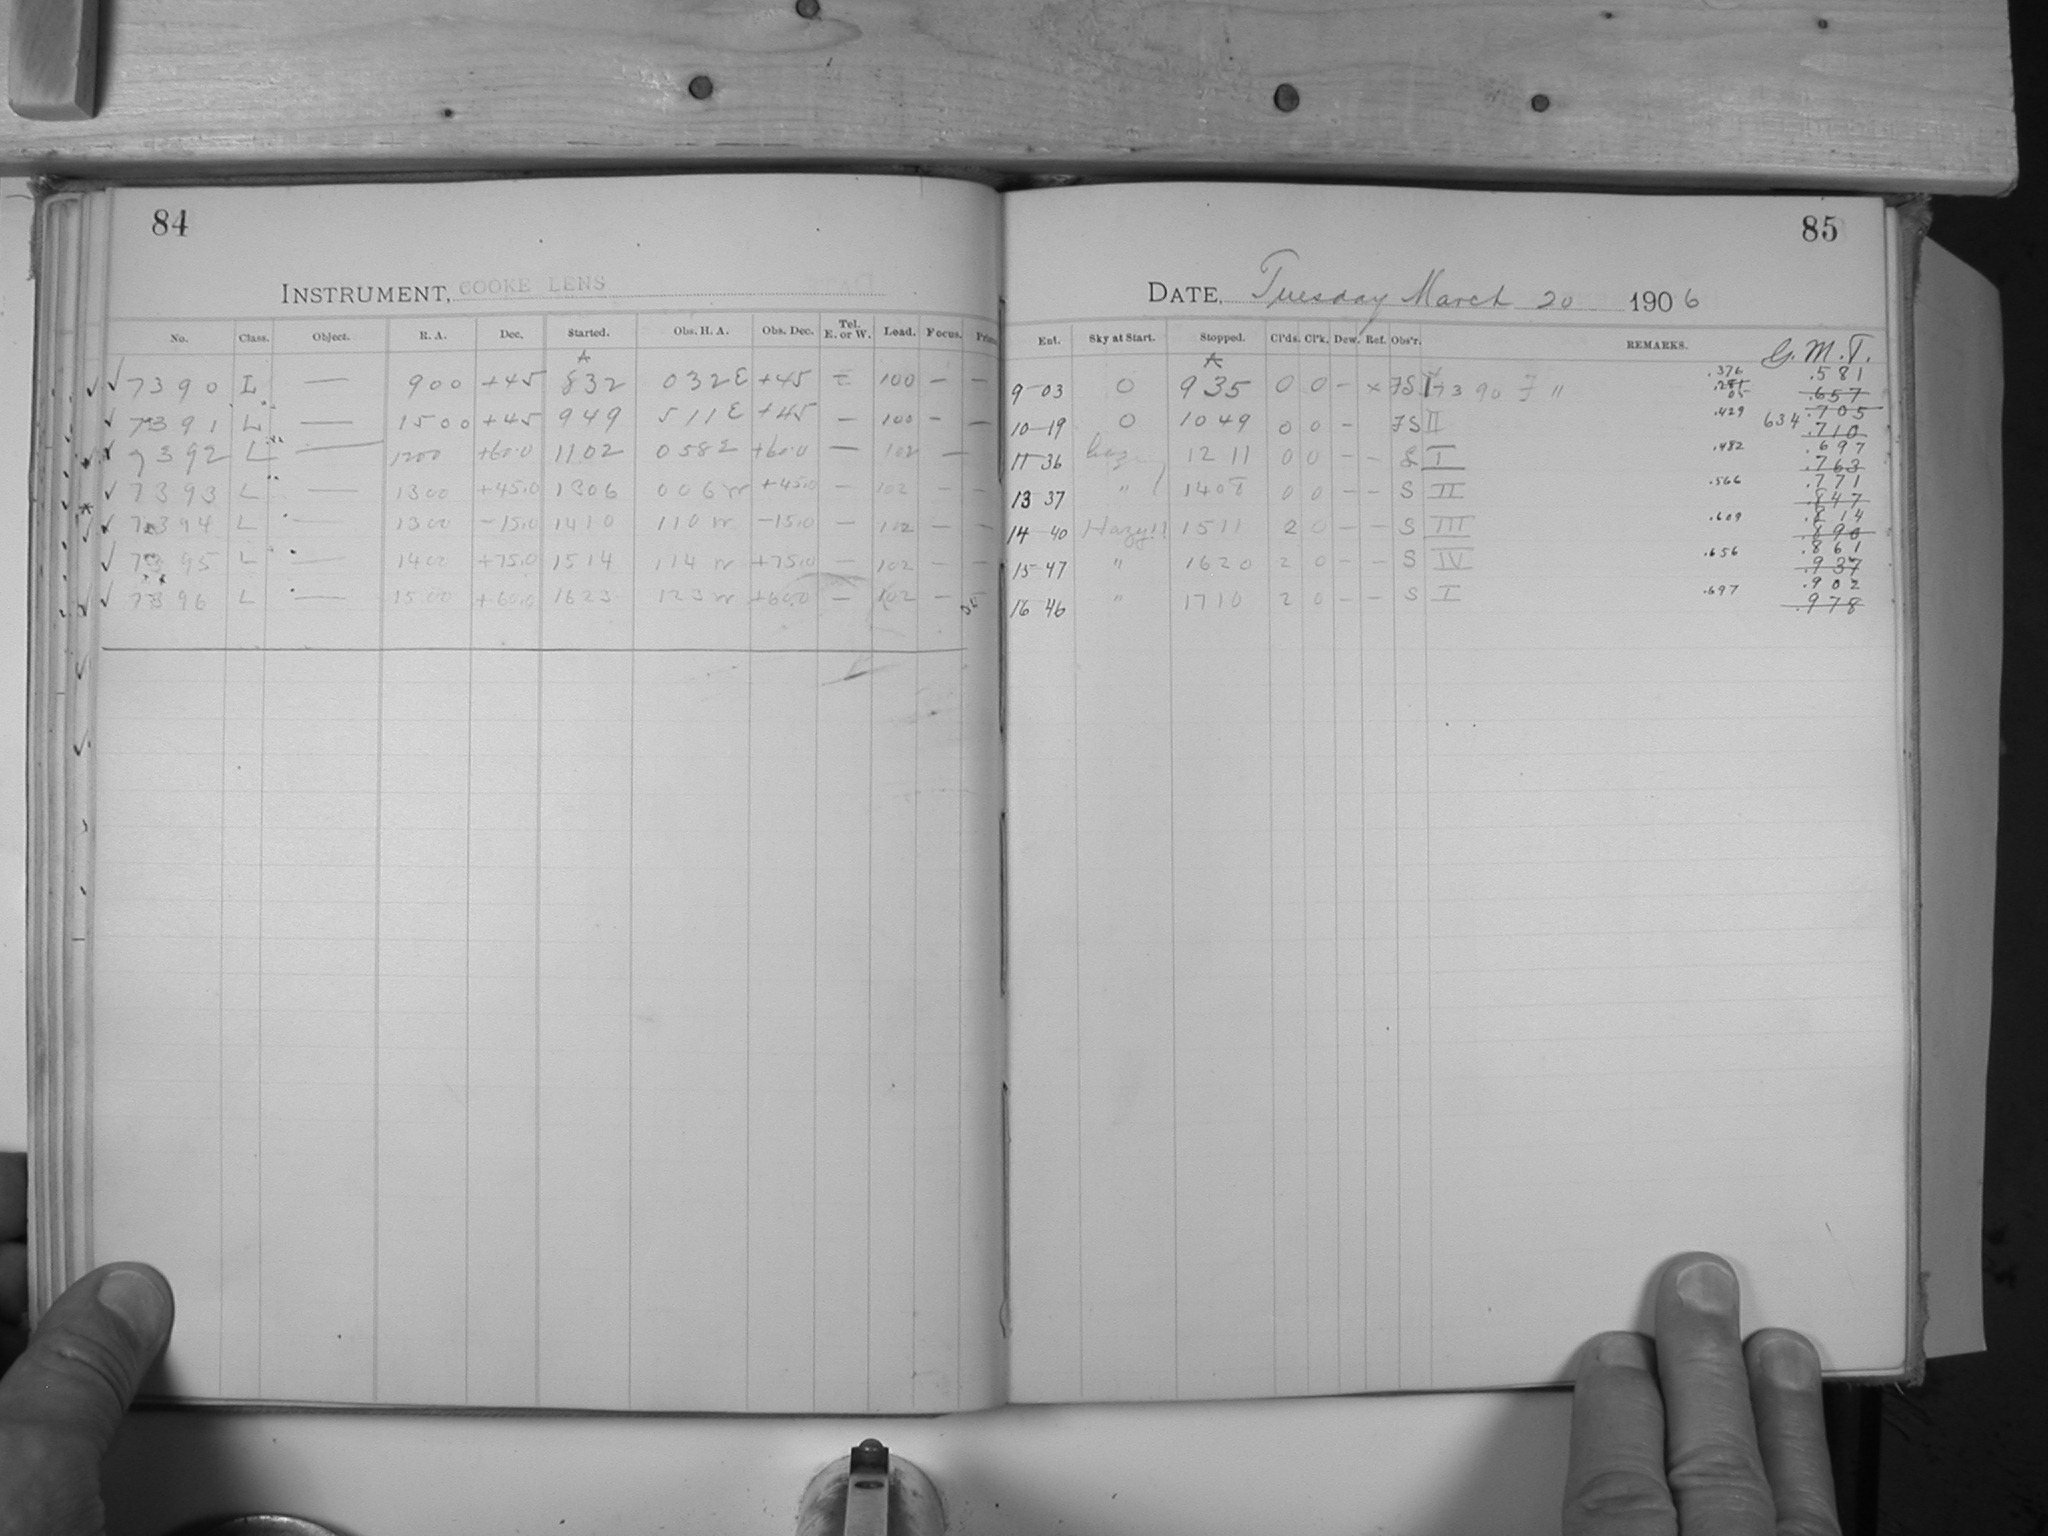 84
INSTRUMENT, COOKE LENS
No. Class. Object. R. A. Dec. Started. Obs. H. A. Obs. Dec. Tel. E. or W. Lead. Focus.
7390 L — 900 +45 832 032E +45 — 100 — —
7391 L — 1500 +45 949 511E +45 — 100 — —
7392 L — 1200 +60.0 1102 058E +60.0 — 102 —
7393 L — 1300 +45.0 1306 006W +45.0 — 102 — —
7394 L — 1300 -15.0 1410 110W -15.0 — 102 — —
7395 L — 1400 +75.0 1514 114W +75.0 — 102 — —
7396 L — 1500 +60.0 1623 123W +60.0 — 102 —
85
DATE, Tuesday March 20 1906
Ent. Sky at Start. Stopped. Cl'ds. Cl'k. Dew. Ref. Obs'r. REMARKS. G. M. T.
9-03 0 935 0 0 - x FS I 7390 F " .376 .581 .657
10-19 0 1049 0 0 - FS II .429 634 .705 .710
11-36 1211 0 0 - - S I .482 .697 .763
13-37 " 1408 0 0 - - S II .566 .771 .847
14-40 Hazy!! 1511 2 0 - - S III .609 .814 .890
15-47 " 1620 2 0 - - S IV .656 .861 .937
16 46 " 1710 2 0 - - S I .697 .902 .978